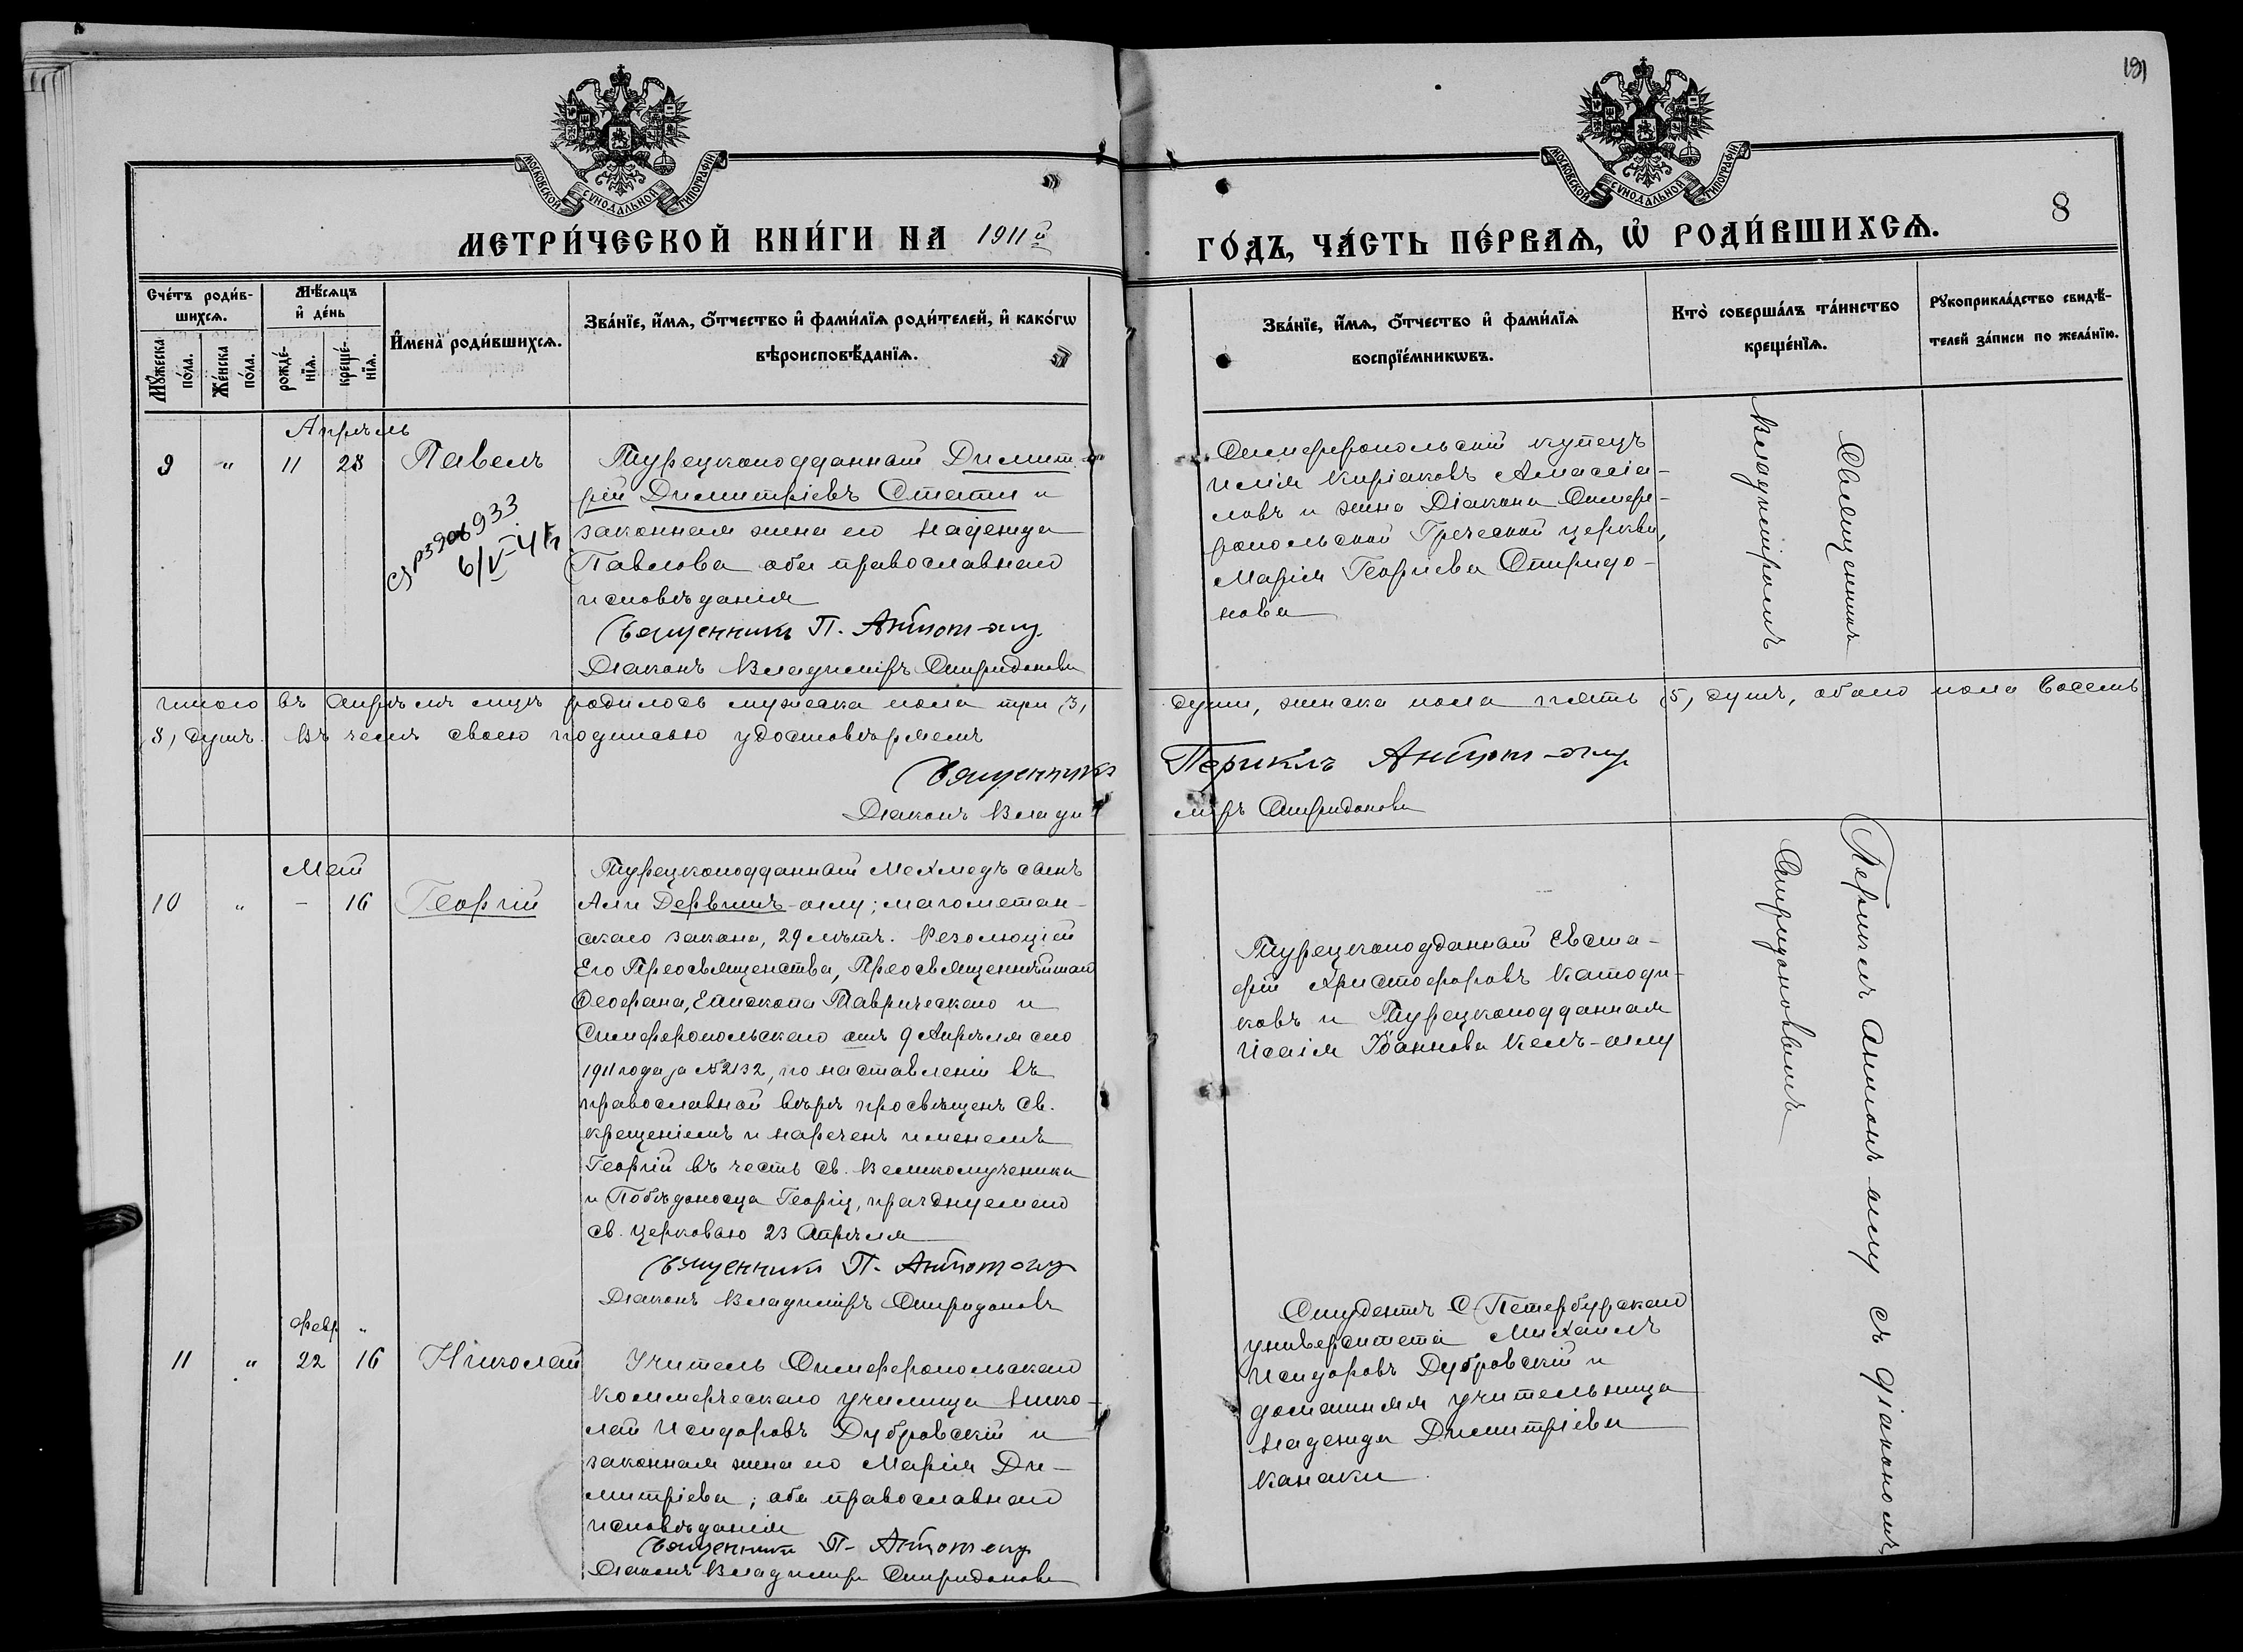 191
МОСКОВСКОЙ СѴНОДАЛЬНОЙ ТИПОГРАФІИ
МОСКОВСКОЙ СѴНОДАЛЬНОЙ ТИПОГРАФІИ
8
МЕТРИ́ЧЕСКОЙ КНИ́ГИ НА 1911й
ГО́ДЪ, ЧА́СТЬ ПЕ́РВАѦ, Ѡ РОДИ́ВШИХСѦ.
Сче́тъ роди́в-
шихсѧ.
Мѣ́сѧцъ
и҆ де́нь
Мꙋ́жеска
по́ла.
Же́нска
по́ла.
рожде́-
нїѧ.
креще́-
нїѧ.
И҆мена̀ роди́вшихсѧ.
Зва́нїе, и҆́мѧ, ѻ҆́тчество и҆ фами́лїѧ роди́телей, и҆ како́гѡ
вѣроисповѣ́данїѧ.
Зва́нїе, и҆́мѧ, ѻ҆́тчество и҆ фами́лїѧ
воспрїе́мникѡвъ.
Кто̀ соверша́лъ та́инство
креще́нїѧ.
Рꙋкоприкла́дство свидѣ́-
телей за́писи по жела́нїю.
Апрѣль
9 " 11 28 Павелъ
6/V-41
Турецкоподданный Димит-
рій Димитріевъ Стати и
законная жена его Надежда
Павлова оба православнаго
исповѣданія
Священникъ П. Антон-оглу
Діаконъ Владиміръ Спиридоновъ
Симферопольскій купецъ
Илія Киріаковъ Амассіа-
ловъ и жена Діакона Симфе-
ропольской Греческой церкви,
Марія Георгіева Спиридо-
нова
Священникъ
Владиміромъ
Итого въ Апрѣлѣ мцѣ родилось мужеска пола три, 3,
души, женска пола пять, 5, душъ, обоего пола восемь
, 8, душъ. Въ чемъ своею подписью удостовѣряемъ
Священникъ Периклъ Антон-оглу
Діаконъ Влади-
міръ Спиридоновъ
Май
10 " - 16 Георгій
Турецкоподданный Мехмедъ сынъ
Али Дервишъ-оглу; магометан-
скаго закона, 29 лѣтъ. Резолюціей
Его Преосвященства, Преосвященнѣйшаго
Ѳеофана, Епископа Таврическаго и
Симферопольскаго отъ 9 Апрѣля сего
1911 года за № 2132, по наставленіи въ
православной вѣрѣ просвѣщенъ Св.
крещеніемъ и нареченъ именемъ
Георгій въ честь Св. Великомученика
и Побѣдоносца Георгія, празднуемаго
Св. Церковью 23 Апрѣля
Священникъ П. Антон-оглу
Діаконъ Владиміръ Спиридоновъ
Турецкоподданный Евста-
фій Христофоровъ Катоди-
ковъ и Турецкоподданная
Исаія Іоаннова Кель-оглу
Перикломъ Антонъ-оглу съ діакономъ
Спиридоновымъ
Февр "
11 " 22 16 Николай
Учитель Симферопольскаго
Коммерческаго училища Нико-
лай Исидоровъ Дубровскій и
законная жена его Марія Ди-
митріева; оба православнаго
исповѣданія
Священникъ П. Антон оглу
Діаконъ Владиміръ Спиридоновъ
Студентъ С. Петербургскаго
университета Михаилъ
Исидоровъ Дубровскій и
домашняя учительница
Надежда Димитріева
Канаки.